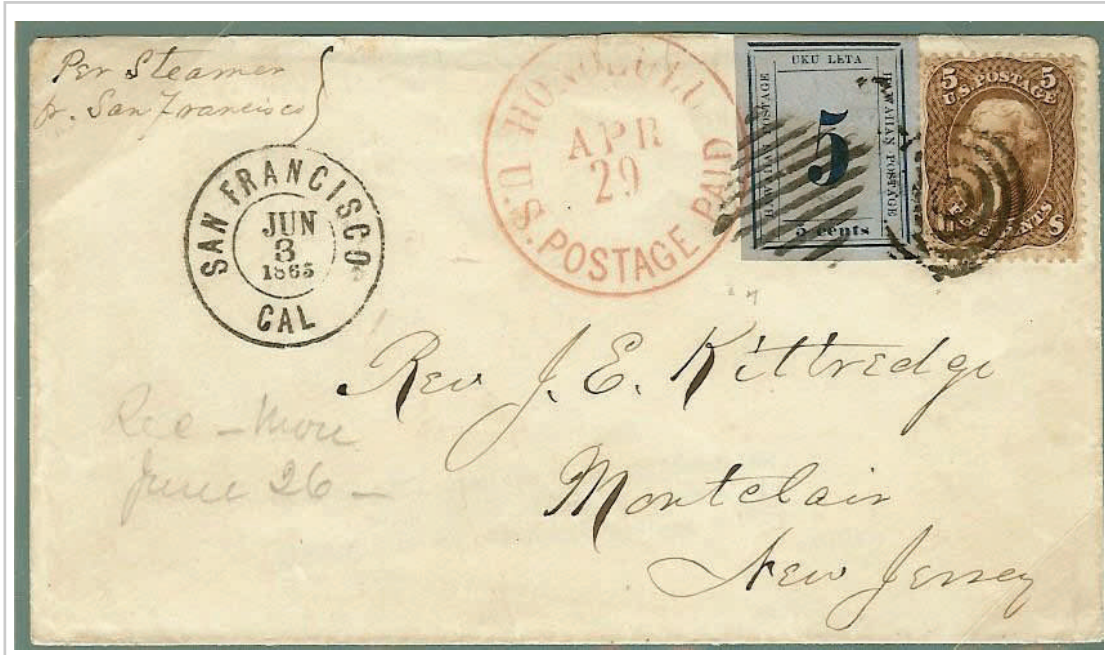 Per Steamer
pr. San Francisco
SAN FRANCISCO
JUN
3
1865
CAL
HONOLULU
APR
29
U.S. POSTAGE PAID
UKU LETA
HAWAIIAN POSTAGE
5
HAWAIIAN POSTAGE.
5 cents
5 5
U.S. POSTAGE
FIVE CENTS
U S
Rev J. E. Kittredge
Montclair
New Jersey
Rec - 
June 26 -